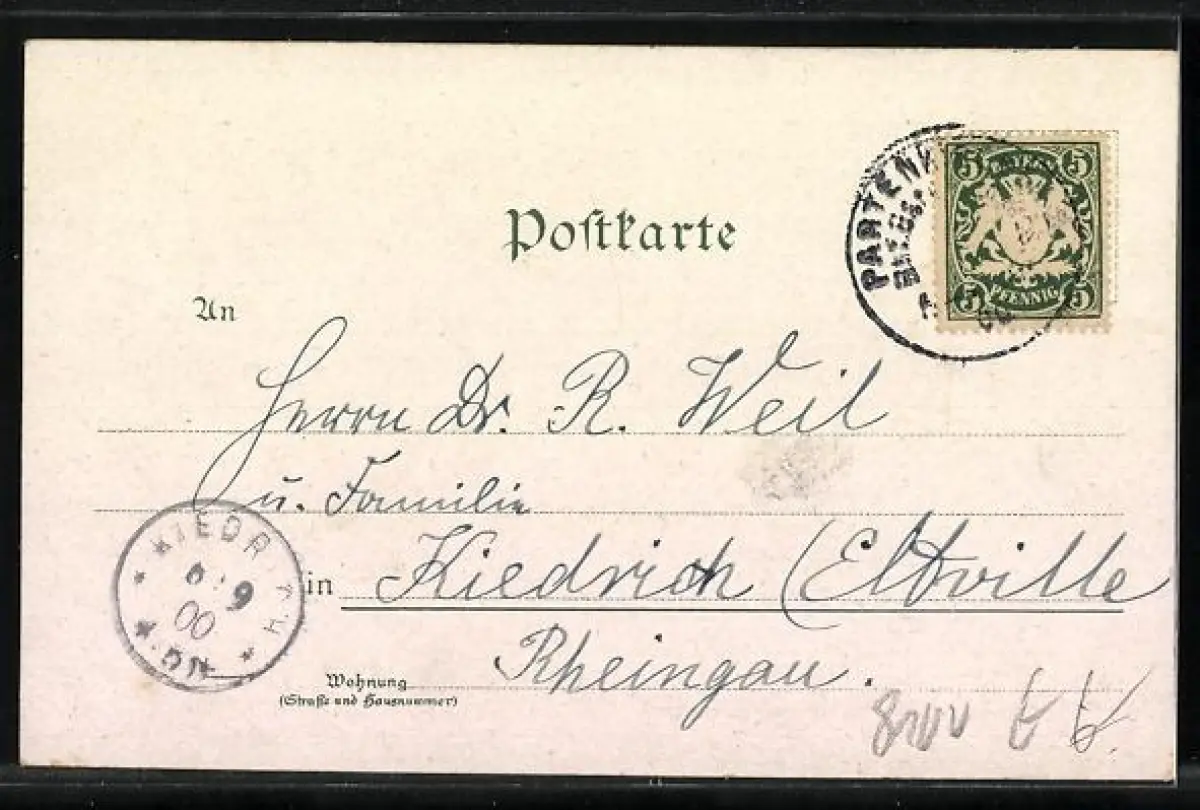 Postkarte
An
Herrn Dr. R. Weil
u. Familie
in Kiedrich (Eltville
Rheingau.
Wohnung
(Straße und Hausnummer)
PARTENK
5 BAYERN 5
5 PFENNIG 5
KIEDRICH
9
00